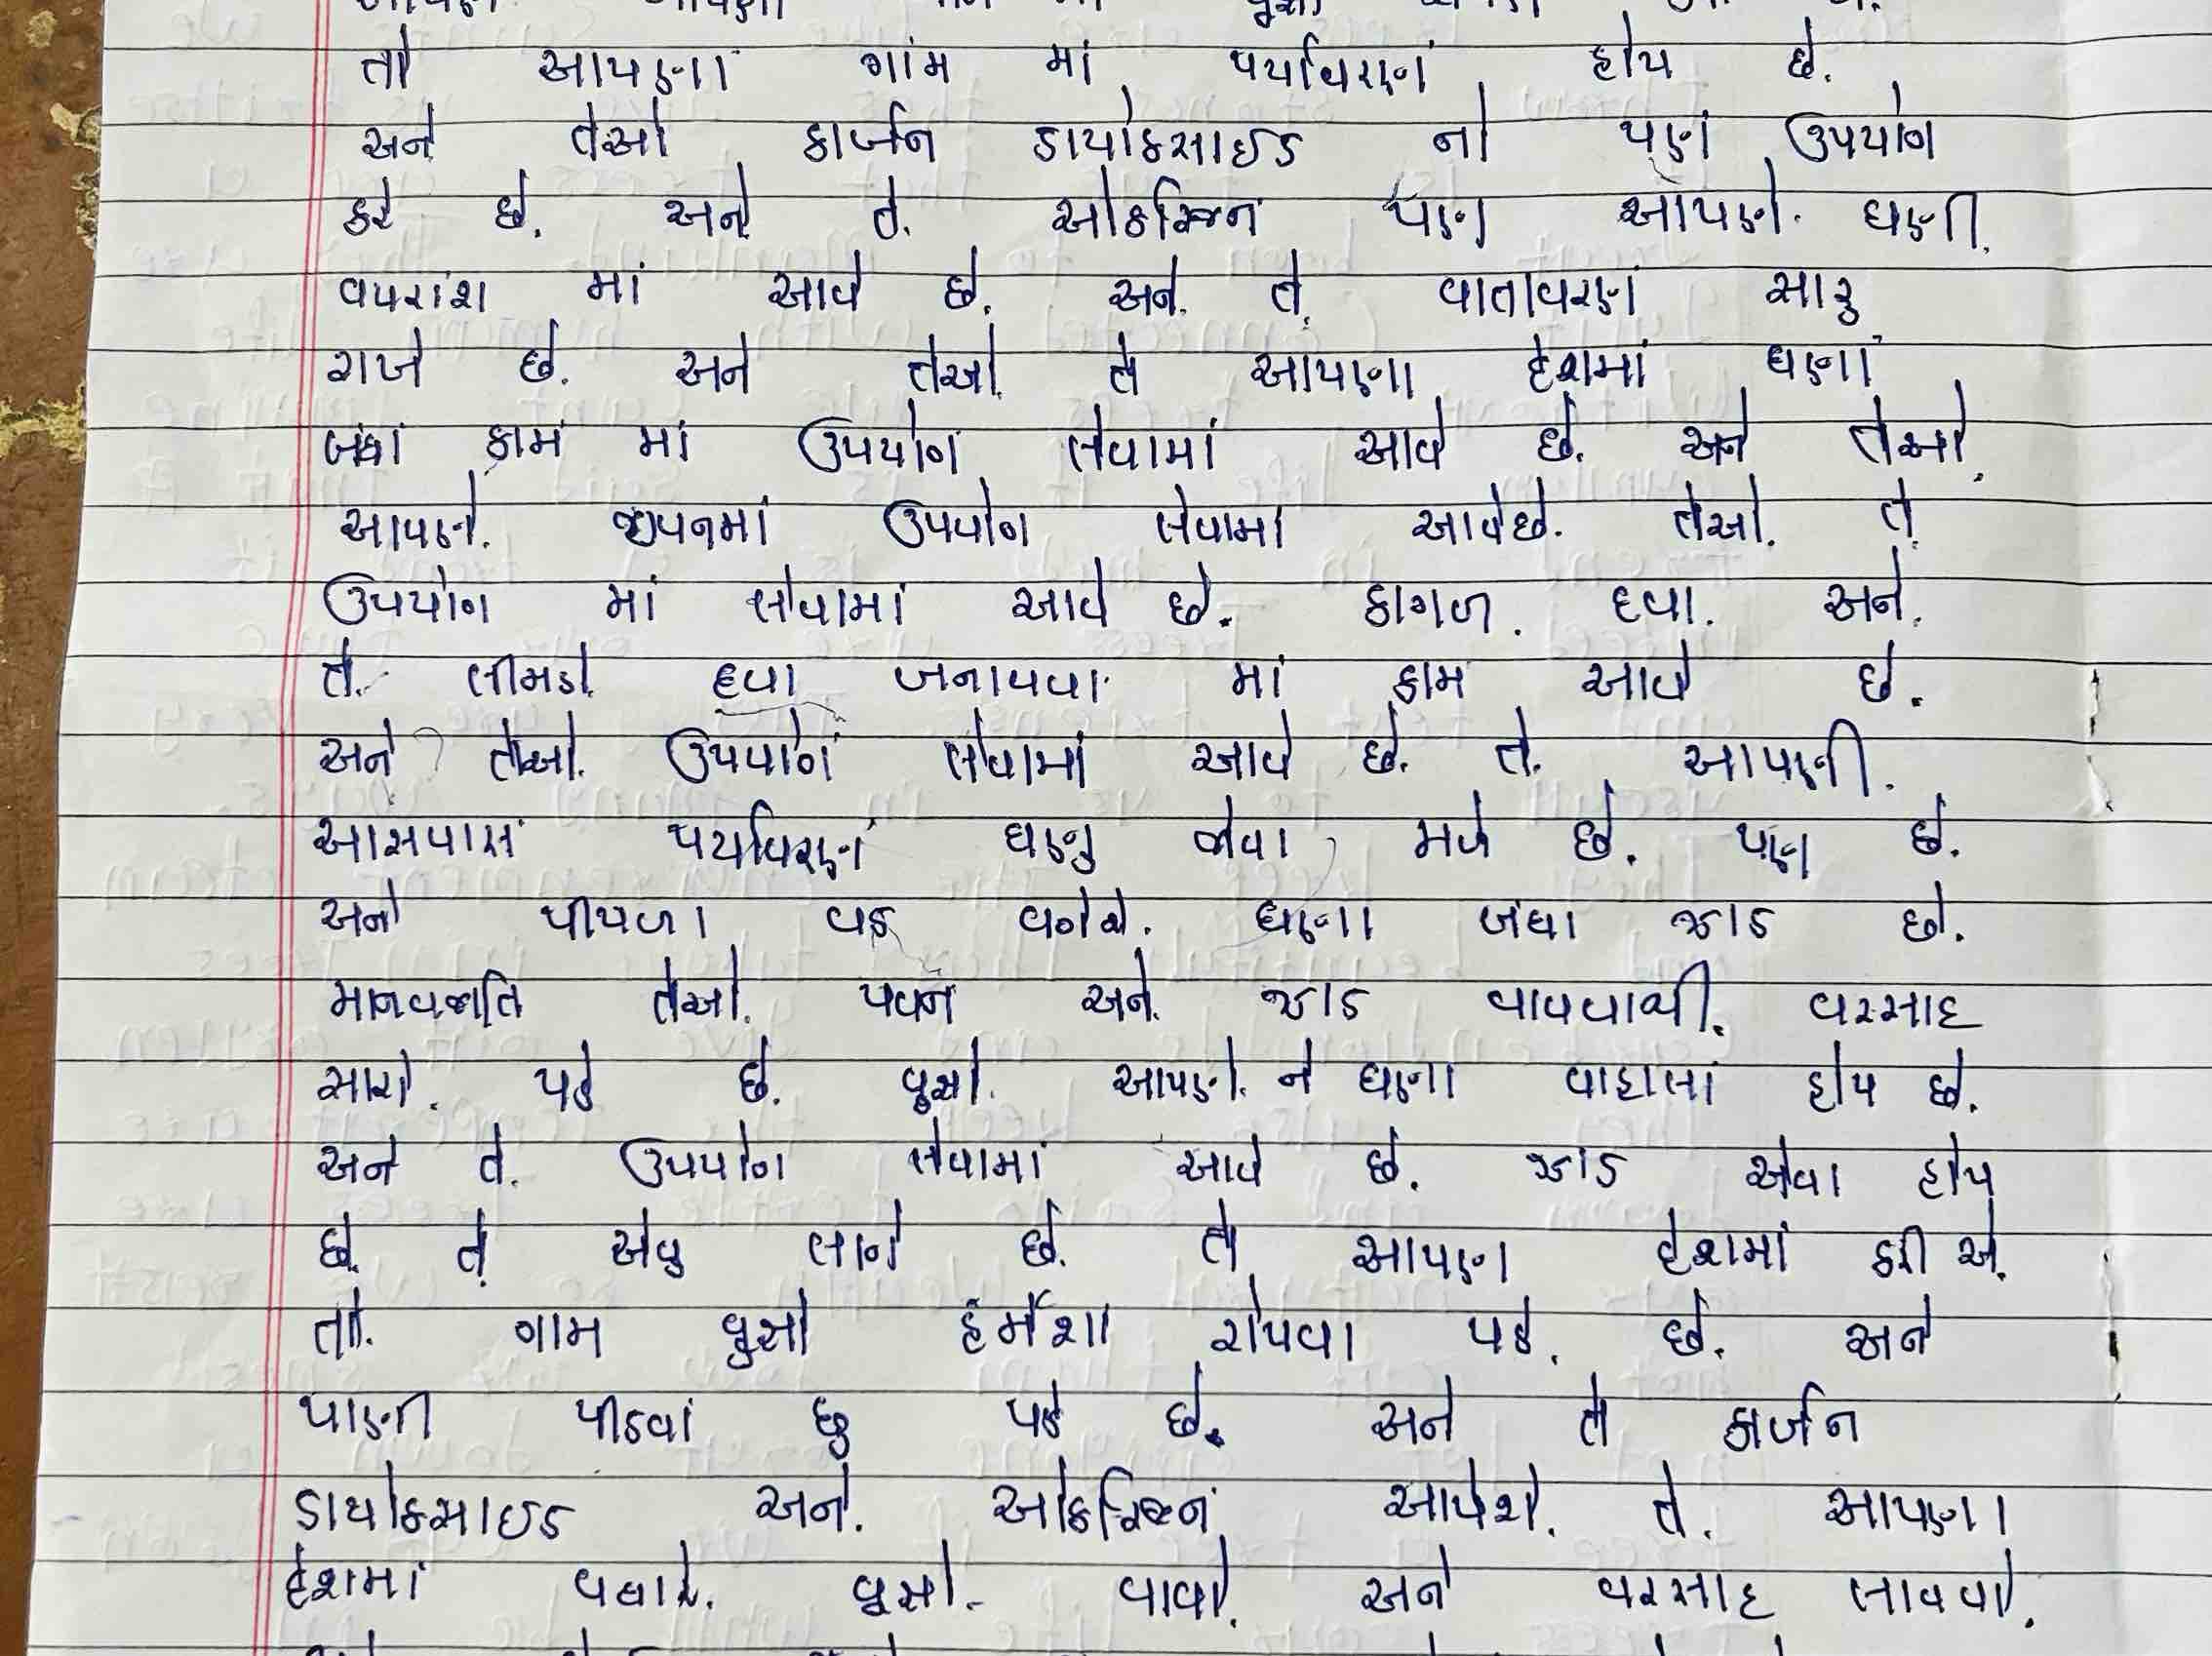 તો આપણા ગાંમ માં પર્યાવરણં હોય છે.
અને તેઓ કાર્બન ડાયોકસાઇડ નો પણં ઉપયોગ
કરે છે. અને તે. ઓકસિજન પણ આપણે. ઘણી.
વપરાંશ માં આવે છે. અને. તે. વાતાવરણં સારુ
રાખે છે. અને તેઓ. તે આપણા દેશમાં ઘણાં
બંધાં કામં માં ઉપયોગ લેવામાં આવે છે. અને તેઓ.
આપણે. જીવનમાં ઉપયોગ લેવામાં આવેછે. તેઓ. તે.
ઉપયોગ માં લેવામાં આવે છે. કાગળ. દવા. અને.
તે. લીમડો. દવા બનાવવા માં કામ આવે છે.
અને તેઓ. ઉપયોગં લેવામાં આવે છે. તે. આપણી.
આસપાસં પર્યાવરણં ઘણુ જોવા મળે છે. પણ છે.
અને પીપળા વડ વગેરે. ઘણા બંધા ઝાડ છે.
માનવજાતિ તેઓ. પવન અને. ઝાડ વાવવાથી. વરસાદ
સારો. પડે છે. વૃક્ષો. આપણે. ને ઘણા વાહાલાં હોય છે.
અને તે. ઉપયોગ લેવામાં આવે છે. ઝાડ એવા હોય
છે. તે. એવુ લાગે છે. તે આપણ દેશમાં કરી એ.
તો. ગામ વૃક્ષો હંમેશા રોપવા પડે. છે. અને
પાણી પીડવાં છુ પડે છે. અને તે કાર્બન
ડાયોકસાઇડ અને. ઓકસિજન આપેશે. તે. આપણા
દેશમાં વધારે. વૃક્ષો. વાવો. અને વરસાદ લાવવો.